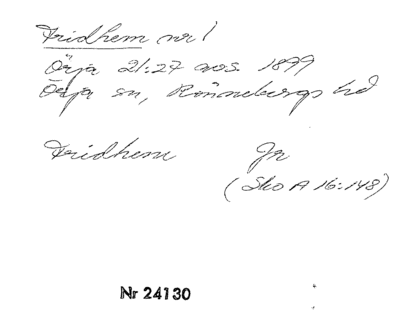 Fridhem nr 1
Örja 21:27 avs. 1899
Örja sn, Rönnebergs hd
Fridhem Jr
(Sko A 16:148)
Nr 24130